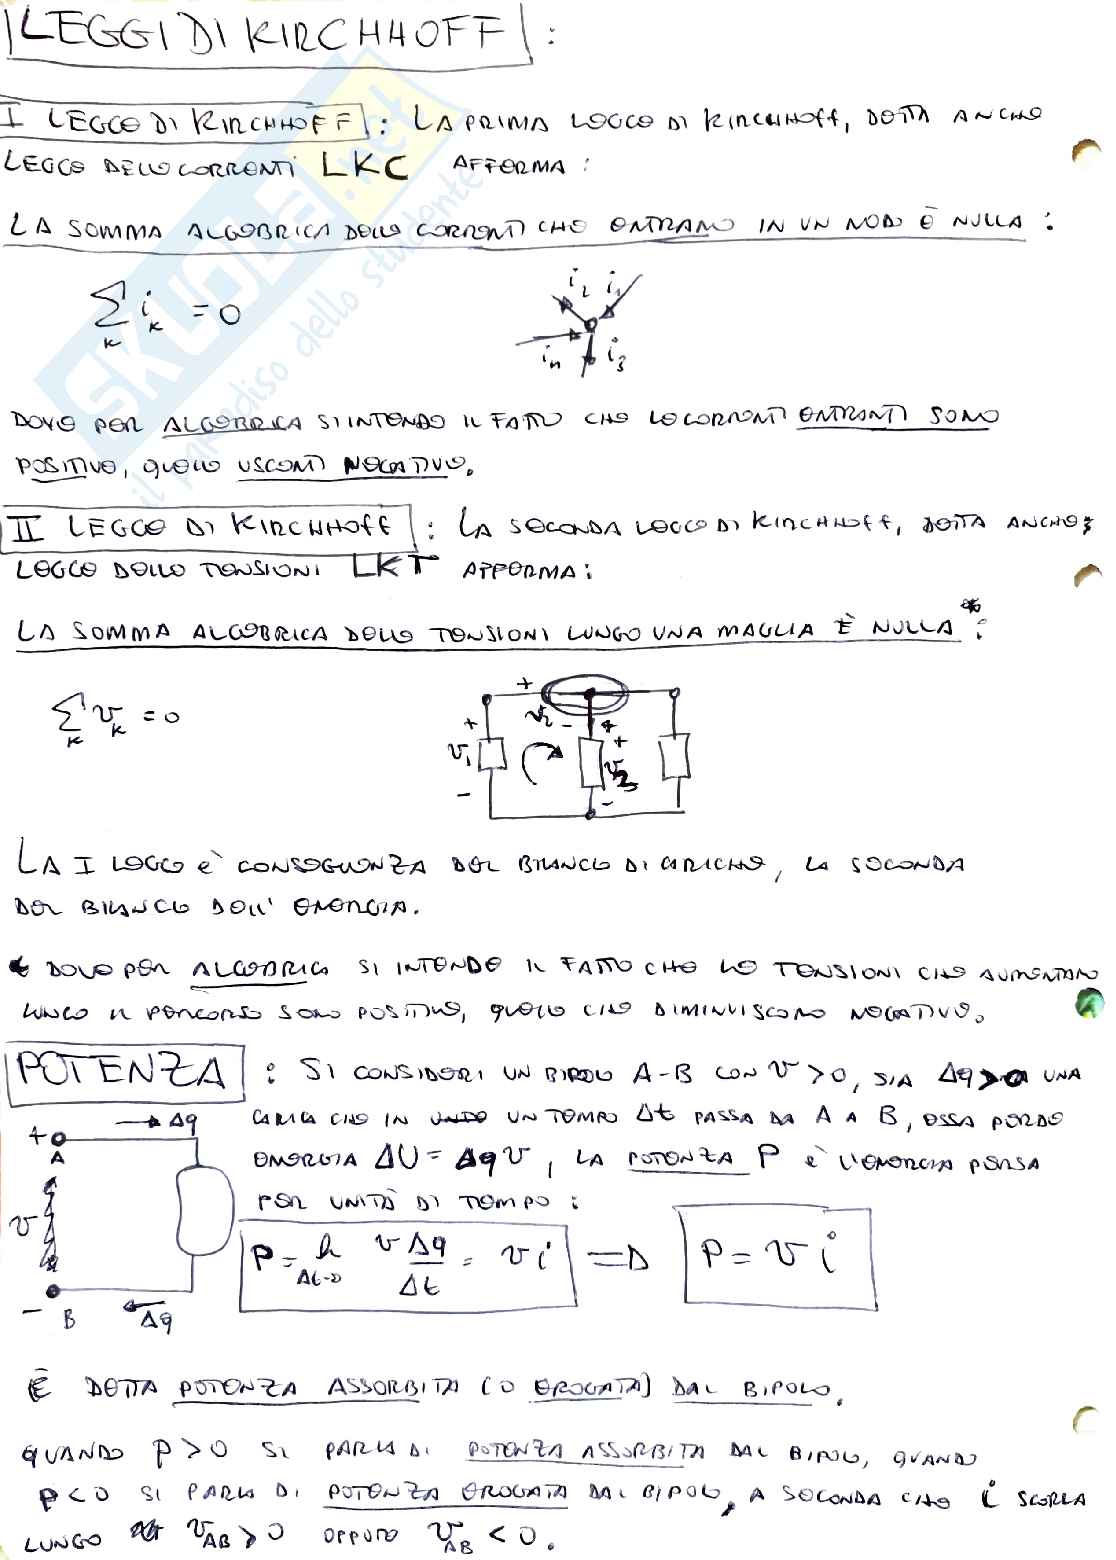 LEGGI DI KIRCHHOFF :
I LEGGE DI KIRCHHOFF : LA PRIMA LEGGE DI KIRCHHOFF, DETTA ANCHE
LEGGE DELLE CORRENTI LKC AFFERMA :
LA SOMMA ALGEBRICA DELLE CORRENTI CHE ENTRANO IN UN NODO È NULLA :
∑k ik = 0
i2 i1
in i3
DOVE PER ALGEBRICA SI INTENDE IL FATTO CHE LE CORRENTI ENTRANTI SONO
POSITIVE, QUELLE USCENTI NEGATIVE.
II LEGGE DI KIRCHHOFF : LA SECONDA LEGGE DI KIRCHHOFF, DETTA ANCHE
LEGGE DELLE TENSIONI LKT AFFERMA :
LA SOMMA ALGEBRICA DELLE TENSIONI LUNGO UNA MAGLIA È NULLA * :
∑k vk = 0
+ v2 -
+ v1 -
+ v3 -
LA I LEGGE È CONSEGUENZA DEL BILANCIO DI CARICHE, LA SECONDA
DEL BILANCIO DELL' ENERGIA.
* DOVE PER ALGEBRICA SI INTENDE IL FATTO CHE LE TENSIONI CHE AUMENTANO
LUNGO IL PERCORSO SONO POSITIVE, QUELLE CHE DIMINUISCONO NEGATIVE.
POTENZA : SI CONSIDERI UN BIPOLO A-B CON v > 0, SIA Δq > 0 UNA
CARICA CHE IN UN TEMPO Δt PASSA DA A A B, ESSA PERDE
ENERGIA ΔU = Δq v, LA POTENZA P È L'ENERGIA PERSA
PER UNITÀ DI TEMPO :
+ A Δq
v
- B Δq
P = lim Δt→0 v Δq/Δt = v i ⇒ P = v i
È DETTA POTENZA ASSORBITA (O EROGATA) DAL BIPOLO.
QUANDO P > 0 SI PARLA DI POTENZA ASSORBITA DAL BIPOLO, QUANDO
P < 0 SI PARLA DI POTENZA EROGATA DAL BIPOLO, A SECONDA CHE i SCORRA
LUNGO vAB > 0 OPPURE vAB < 0.
SKUOLA.net
il paradiso dello studente